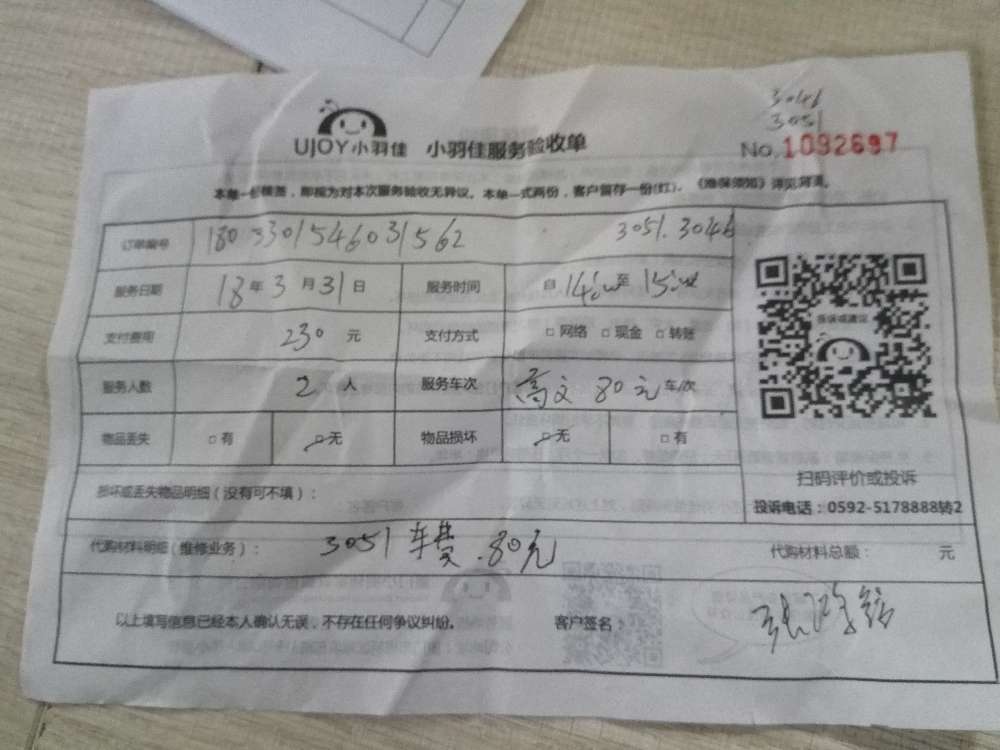 3046
3051
UJOY小羽佳 小羽佳服务验收单 No.1092697
本单一经核签，即视为对本次服务验收无异议。本单一式两份，客户留存一份(红)。《维保须知》详见背面。
订单编号 1803301546031562 3051.3046
服务日期 18年3月31日 服务时间 自 14:00至15:00
支付费用 230元 支付方式 □网络 □现金 □转账
投诉或建议
服务人数 2人 服务车次 80元车/次
物品丢失 □有 □无 物品损坏 □无 □有
扫码评价或投诉
损坏或丢失物品明细（没有可不填）：
投诉电话：0592-5178888转2
代购材料明细（维修业务）： 3051车费.80元 代购材料总额： 元
以上填写信息已经本人确认无误，不存在任何争议纠纷。 客户签名：